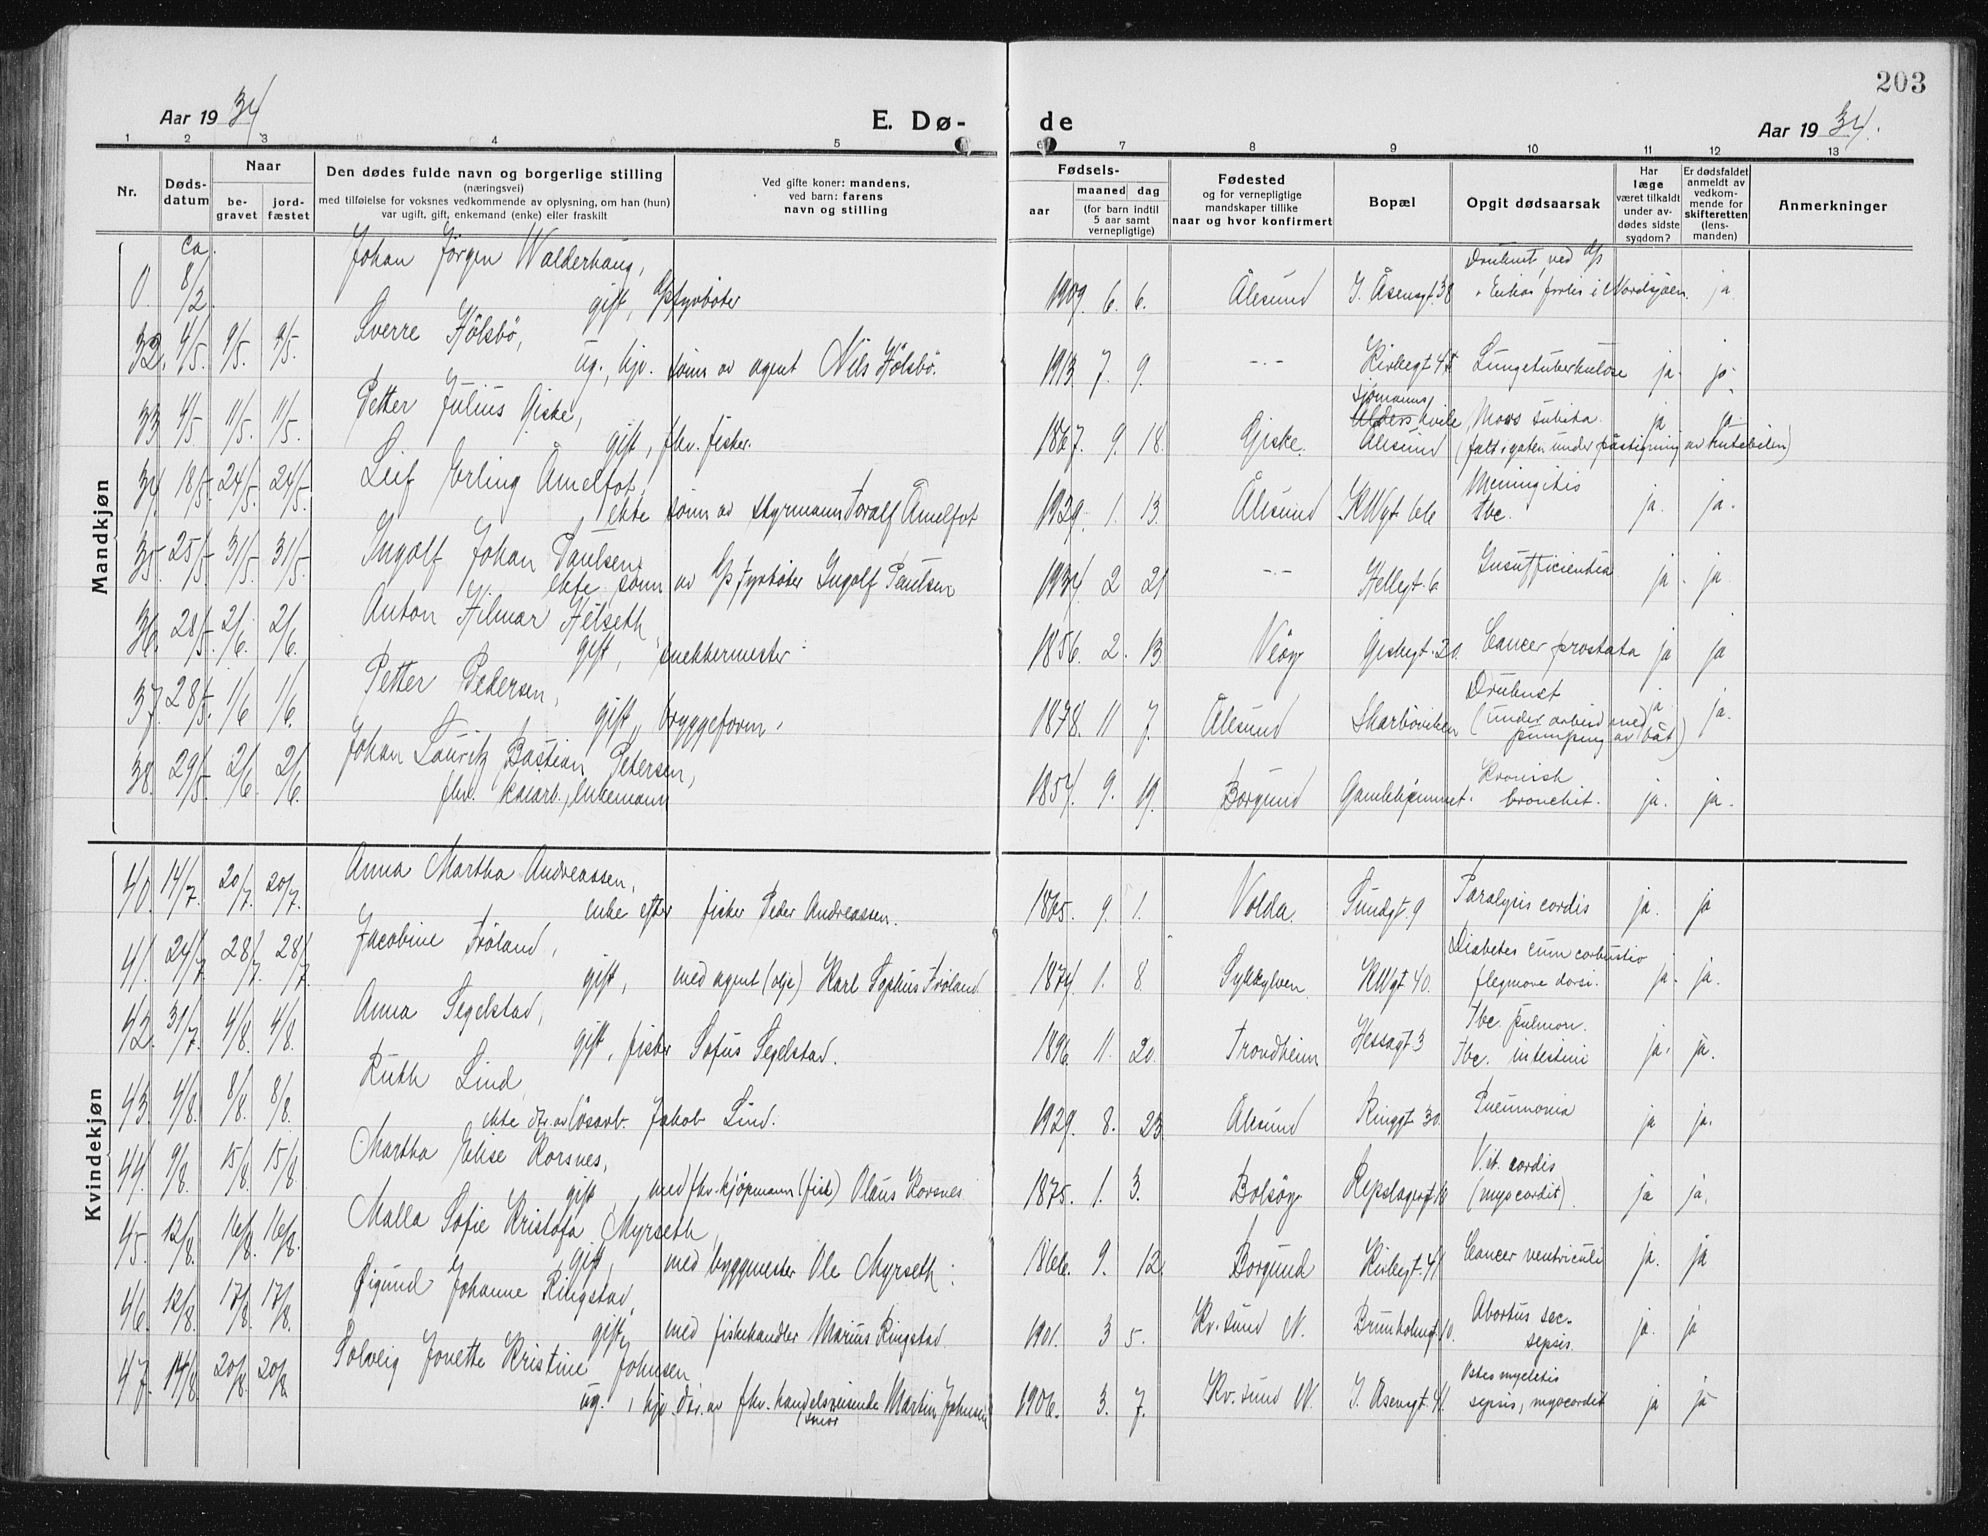 203
Aar 1934
E. Dø-
de
Aar 1934.
1 2 3 4 5 6 7 8 9 10 11 12 13
Nr.
Dødsdatum
Naar
begravet
jordfæstet
Den dødes fulde navn og borgerlige stilling
(næringsvei)
med tilføielse for voksnes vedkommende av oplysning, om han (hun)
var ugift, gift, enkemand (enke) eller fraskilt
Ved gifte koner: mandens,
ved barn: farens
navn og stilling
Fødsels-
aar
maaned dag
(for barn indtil
5 aar samt
vernepligtige)
Fødested
og for vernepligtige
mandskaper tillike
naar og hvor konfirmert
Bopæl
Opgit dødsaarsak
Har
læge
været tilkaldt
under avdødes sidste
sygdom?
Er dødsfaldet
anmeldt av
vedkommende for
skifteretten
(lensmanden)
Anmerkninger
Mandkjøn
0. ca. 8/2 Johan Jörgen Walderhaug,
gift, fyrbøter 1909. 6. 6. Ålesund J. Åsensgt. 38 Druknet ved forlis i Nordsjøen. ja.
32. 4/5. 9/5. 9/5. Sverre Hölsbö,
ug., hjv. sønn av agent Nils Hölsbö. 1913 7. 9. -"- Kirkegt. 45 Lungetuberkulose ja. ja.
33 4/5. 11/5. 11/5. Petter Julius Giske,
gift, fhv. fisker. 1867. 9. 18. Giske. Sjømanns Alders hvile Ålesund Mors subita. (falt i gaten under påstigning av rutebilen) ja
34. 18/5. 24/5. 24/5. Leif Erling Åmelfot,
ekte sønn av styrmann Toralf Åmelfot 1929. 1. 13. Ålesund KWgt. 66 Meningitis tbc. ja. ja.
35. 25/5. 31/5. 31/5. Ingolf Johan Paulsen
ekte sønn av fyrbøter Ingolf Paulsen 1934. 2 21 -"- Hellegt. 6. Insufficientia ja. ja.
36. 28/5. 2/6. 2/6. Anton Hilmar Helseth
gift, snekkermester 1856. 2. 13 Veöy Giskegt. 20. Cancer prostata ja ja
37. 28/5. 1/6 1/6. Petter Pedersen,
gift, bryggeform. 1878. 11 7. Ålesund Skarböviken Druknet (under arbeid med pumping av båt) ja. ja.
38. 29/5. 2/6. 2/6. Johan Lauritz Bastian Petersen,
fhv. kaiarb., enkemann 1854. 9. 19. Borgund Gamlehjemmet. Kronisk bronchit. ja. ja.
Kvindekjøn
40. 14/7. 20/7. 20/7. Anna Martha Andreassen,
enke efter fisker Peder Andreassen. 1865. 9. 1. Volda. Sundgt. 9 Paralysis cordis ja. ja
41. 24/7 28/7. 28/7. Jacobine Fröland,
gift, med agent (olje) Karl Sophus Fröland. 1874. 1. 8. Sykkylven KWgt 40. Diabetes cum flegmone dorsi. ja. ja.
42. 31/7 4/8. 4/8. Anna Segelstad,
gift, fisker Sofus Segelstad. 1896. 11. 20. Trondheim Hessagt 3 Tbc. pulmon. Tbc. intestini ja. ja.
43. 4/8. 8/8. 8/8. Ruth Lind,
ekte dtr. av løsarb. Jakob Lind. 1929. 8. 23 Ålesund Ringgt 30. Pneumonia ja ja.
44. 9/8. 15/8. 15/8. Martha Elise Korsnes,
gift, med fhv. kjøpmann (fisk) Olaus Korsnes 1875. 1. 3. Bolsöy Repslagergt. Vit. cordis (myocordit). ja ja.
45. 12/8. 16/8. 16/8. Malla Sofie Kristofa Myrseth,
gift, med byggmester Ole Myrseth. 1866. 9. 12. Borgund Kirkegt. 41 Cancer ventriculi ja. ja
46. 12/8. 17/8. 17/8. Øigund Johanne Ringstad,
gift, med fiskehandler Marius Ringstad. 1901. 3 5. Kr. sund N. Brunholmgt. 10. Abortus sec. sepsis. ja. ja
47. 14/8 20/8. 20/8. Solveig Jonette Kristine Johnsen
ug., hjv. Dtr. av fhv. handelsreisende Martin Johnsen 1906. 3. 7. Kr. sund N. J. Åsensgt. 41. Osteomyelitis sepsis, myocordit ja ja